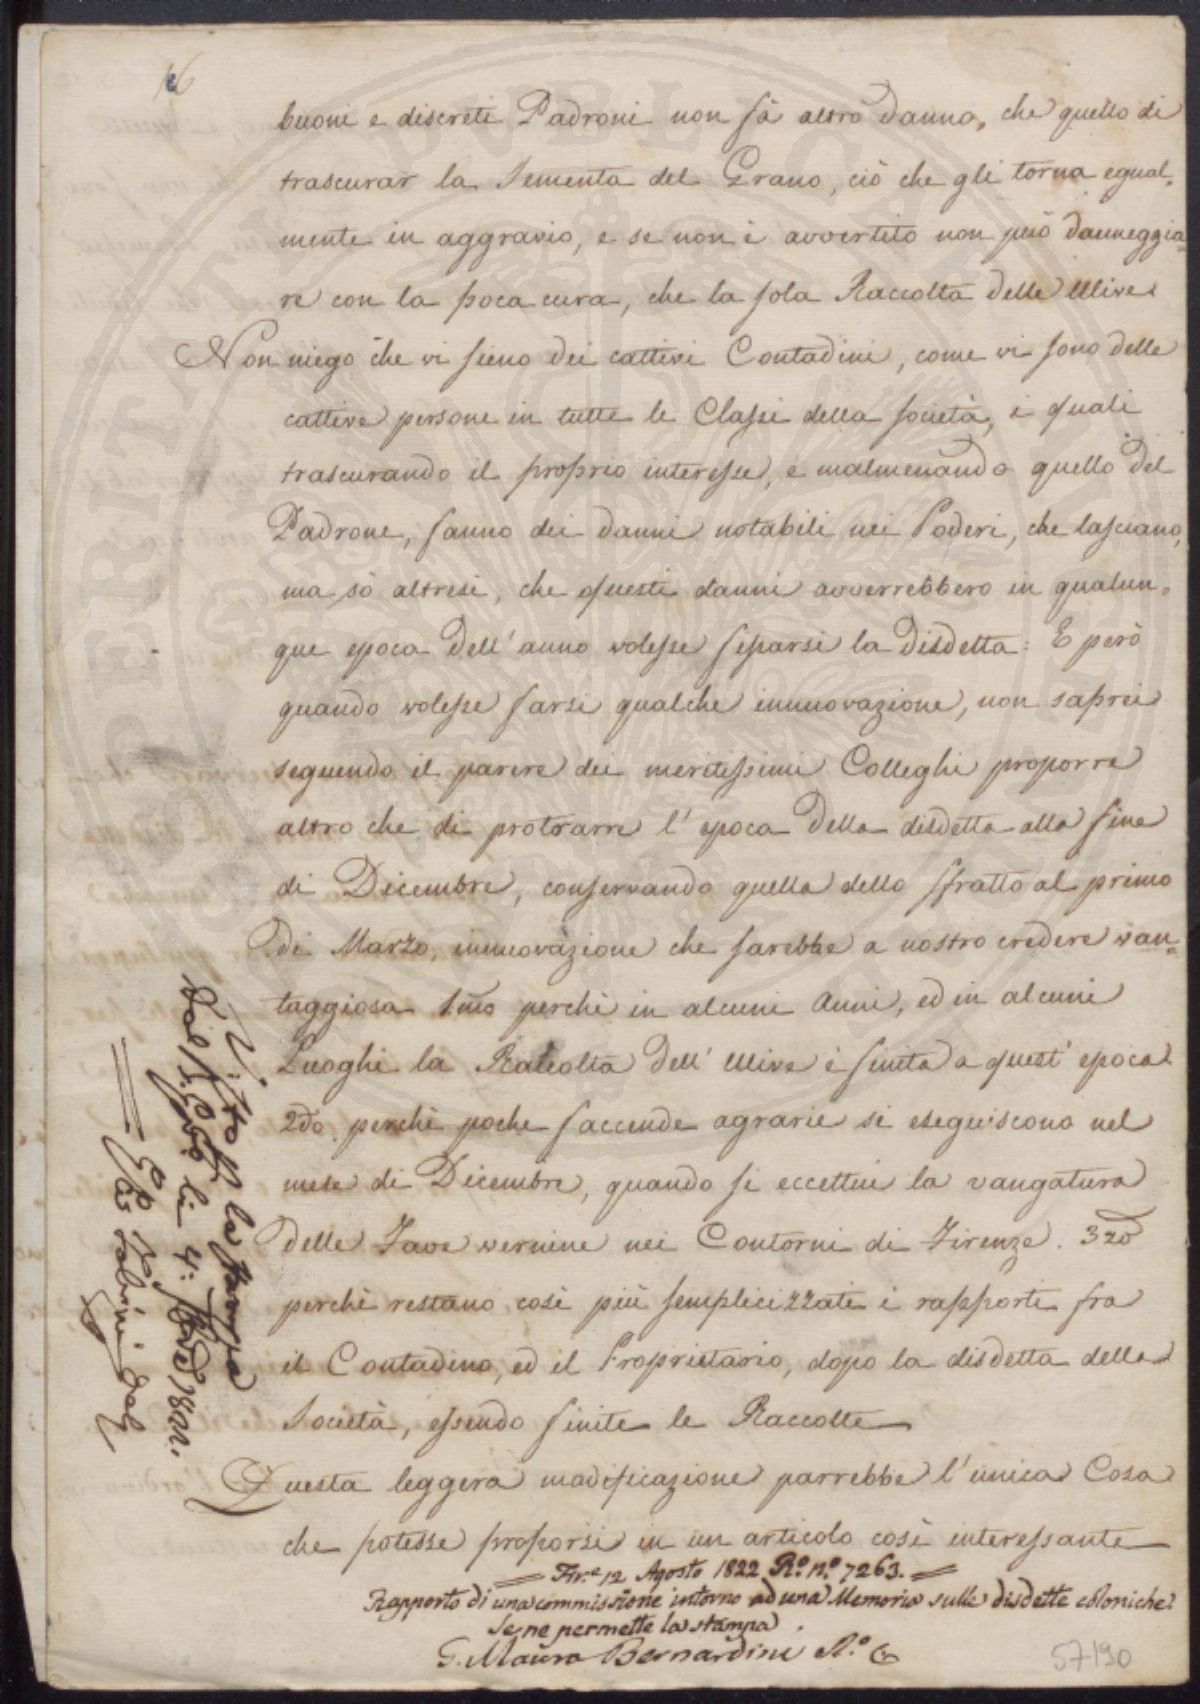 16
buoni e discreti Padroni non fà altro danno, che quello di
trascurar la Sementa del Grano, ciò che gli torna egual=
mente in aggravio, e se non è avvertito non può danneggia=
re con la poca cura, che la sola Raccolta delle Ulive
Non niego che vi sieno dei cattivi Contadini, come vi sono delle
cattive persone in tutte le Classi della società, i quali
trascurando il proprio interesse, e malmenando quello del
Padrone, fanno dei danni notabili nei Poderi, che lasciano,
ma sò altresì, che questi danni avverrebbero in qualun=
que epoca dell' anno volesse fissarsi la disdetta: E però
quando volesse farsi qualche innuovazione, non saprei
seguendo il parere dei meritissimi Colleghi proporre
altro che di protrarre l' epoca della disdetta alla fine
di Dicembre, conservando quella dello sfratto al primo
di Marzo, innuovazione che sarebbe a nostro credere van=
taggiosa 1mo perchè in alcuni Anni, ed in alcuni
Luoghi la Raccolta dell' Ulive è finita a quest' epoca
2do. perchè poche faccende agrarie si eseguiscono nel
mese di Dicembre, quando si eccettui la vangatura
delle Fave vernine nei Contorni di Firenze. 3zo
perchè restano così più semplicizzati i rapporti fra
il Contadino, ed il Proprietario, dopo la disdetta della
Società, essendo finite le Raccolte
Questa leggera modificazione parrebbe l'unica Cosa
che potesse proporsi in un articolo così interessante
Fir.e 12 Agosto 1822 R.o N.o 7263.
Rapporto di una commissione intorno ad una Memoria sulle disdette coloniche
Se ne permette la stampa.
G. Mauro Bernardini R.o C
Visto per la stampa
dal li 4: 1822.
57190
PROSPERITATI PUBLICAE